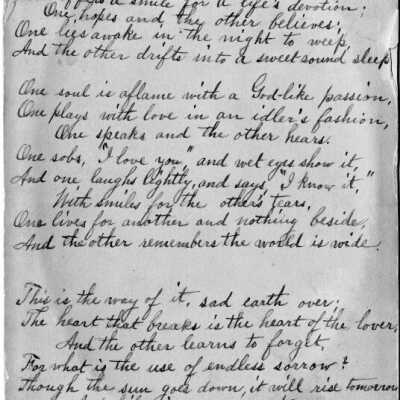 a smile for a life's devotion;
One, hopes and, the other believes;
One lies awake in the night to weep,
And the other drifts into a sweet sound sleep
One soul is aflame with a God-like passion,
One plays with love in an idler's fashion,
One speaks and the other hears.
One sobs, "I love you," and wet eyes show it,
And one laughs lightly, and says, "I know it,"
With smiles for the other's tears.
One lives for another and nothing beside,
And the other remembers the world is wide.
This is the way of it, sad earth over;
The heart that breaks is the heart of the lover,
And the other learns to forget.
For what is the use of endless sorrow?
Though the sun goes down, it will rise tomorrow